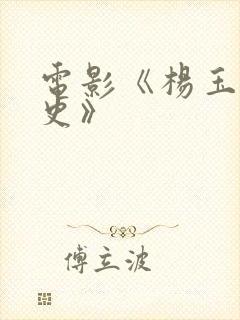 電影《楊玉
史》
傅立波